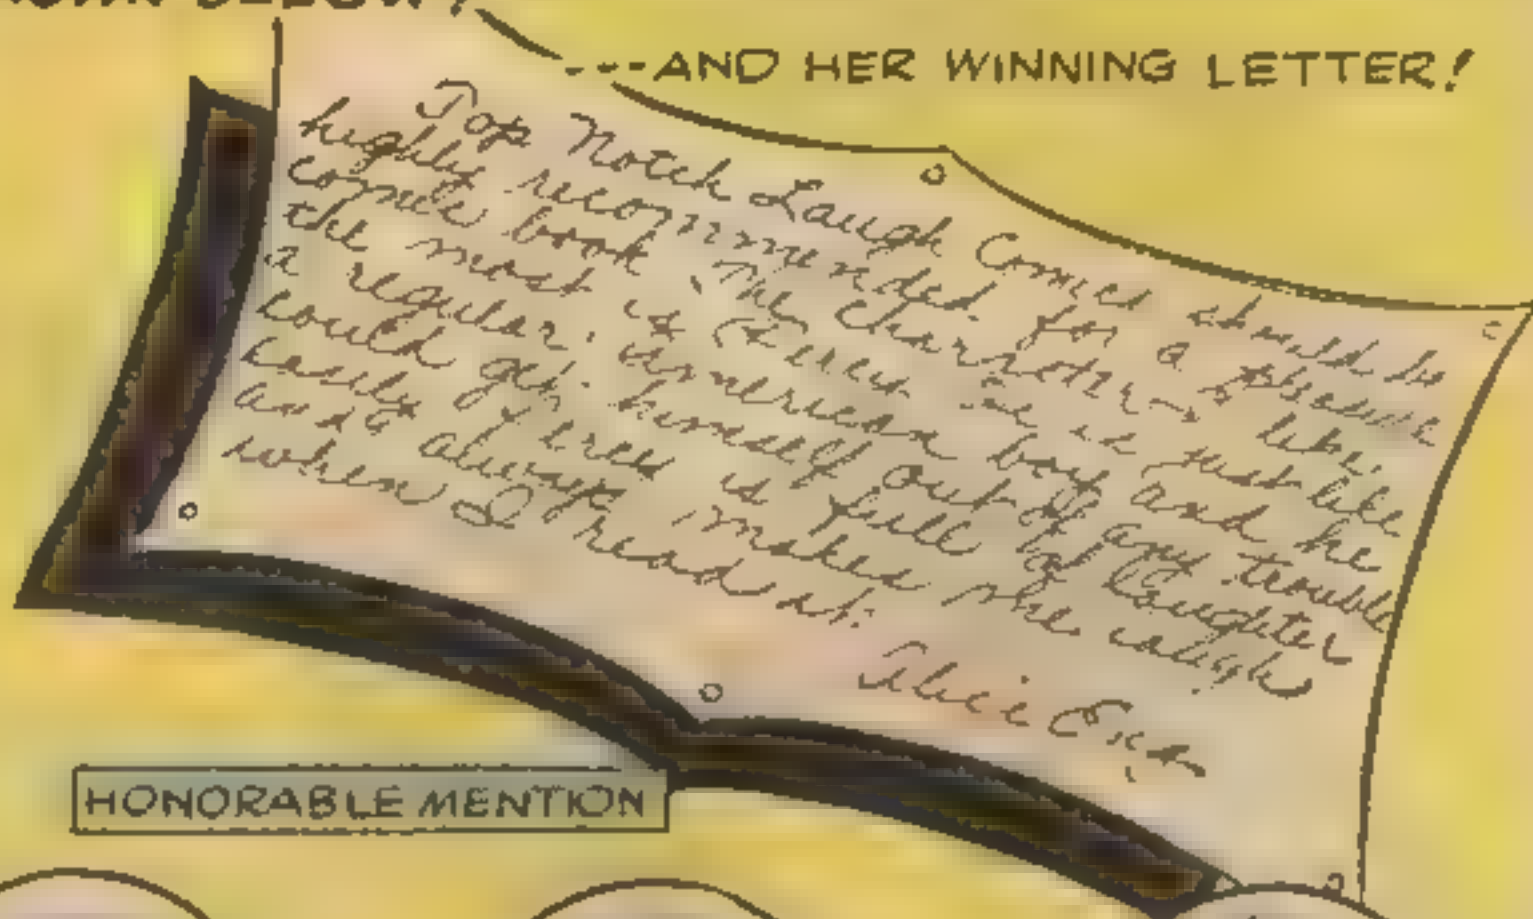 BELOW!
---AND HER WINNING LETTER!
Top Notch Laugh Comics should be
highly recommended for a
comic book. The characters I like
the most is He is just like
a regular American boy and he
could get himself out of any trouble
easily is full of laughter
and always makes me laugh
when I read it.
Alice
HONORABLE MENTION